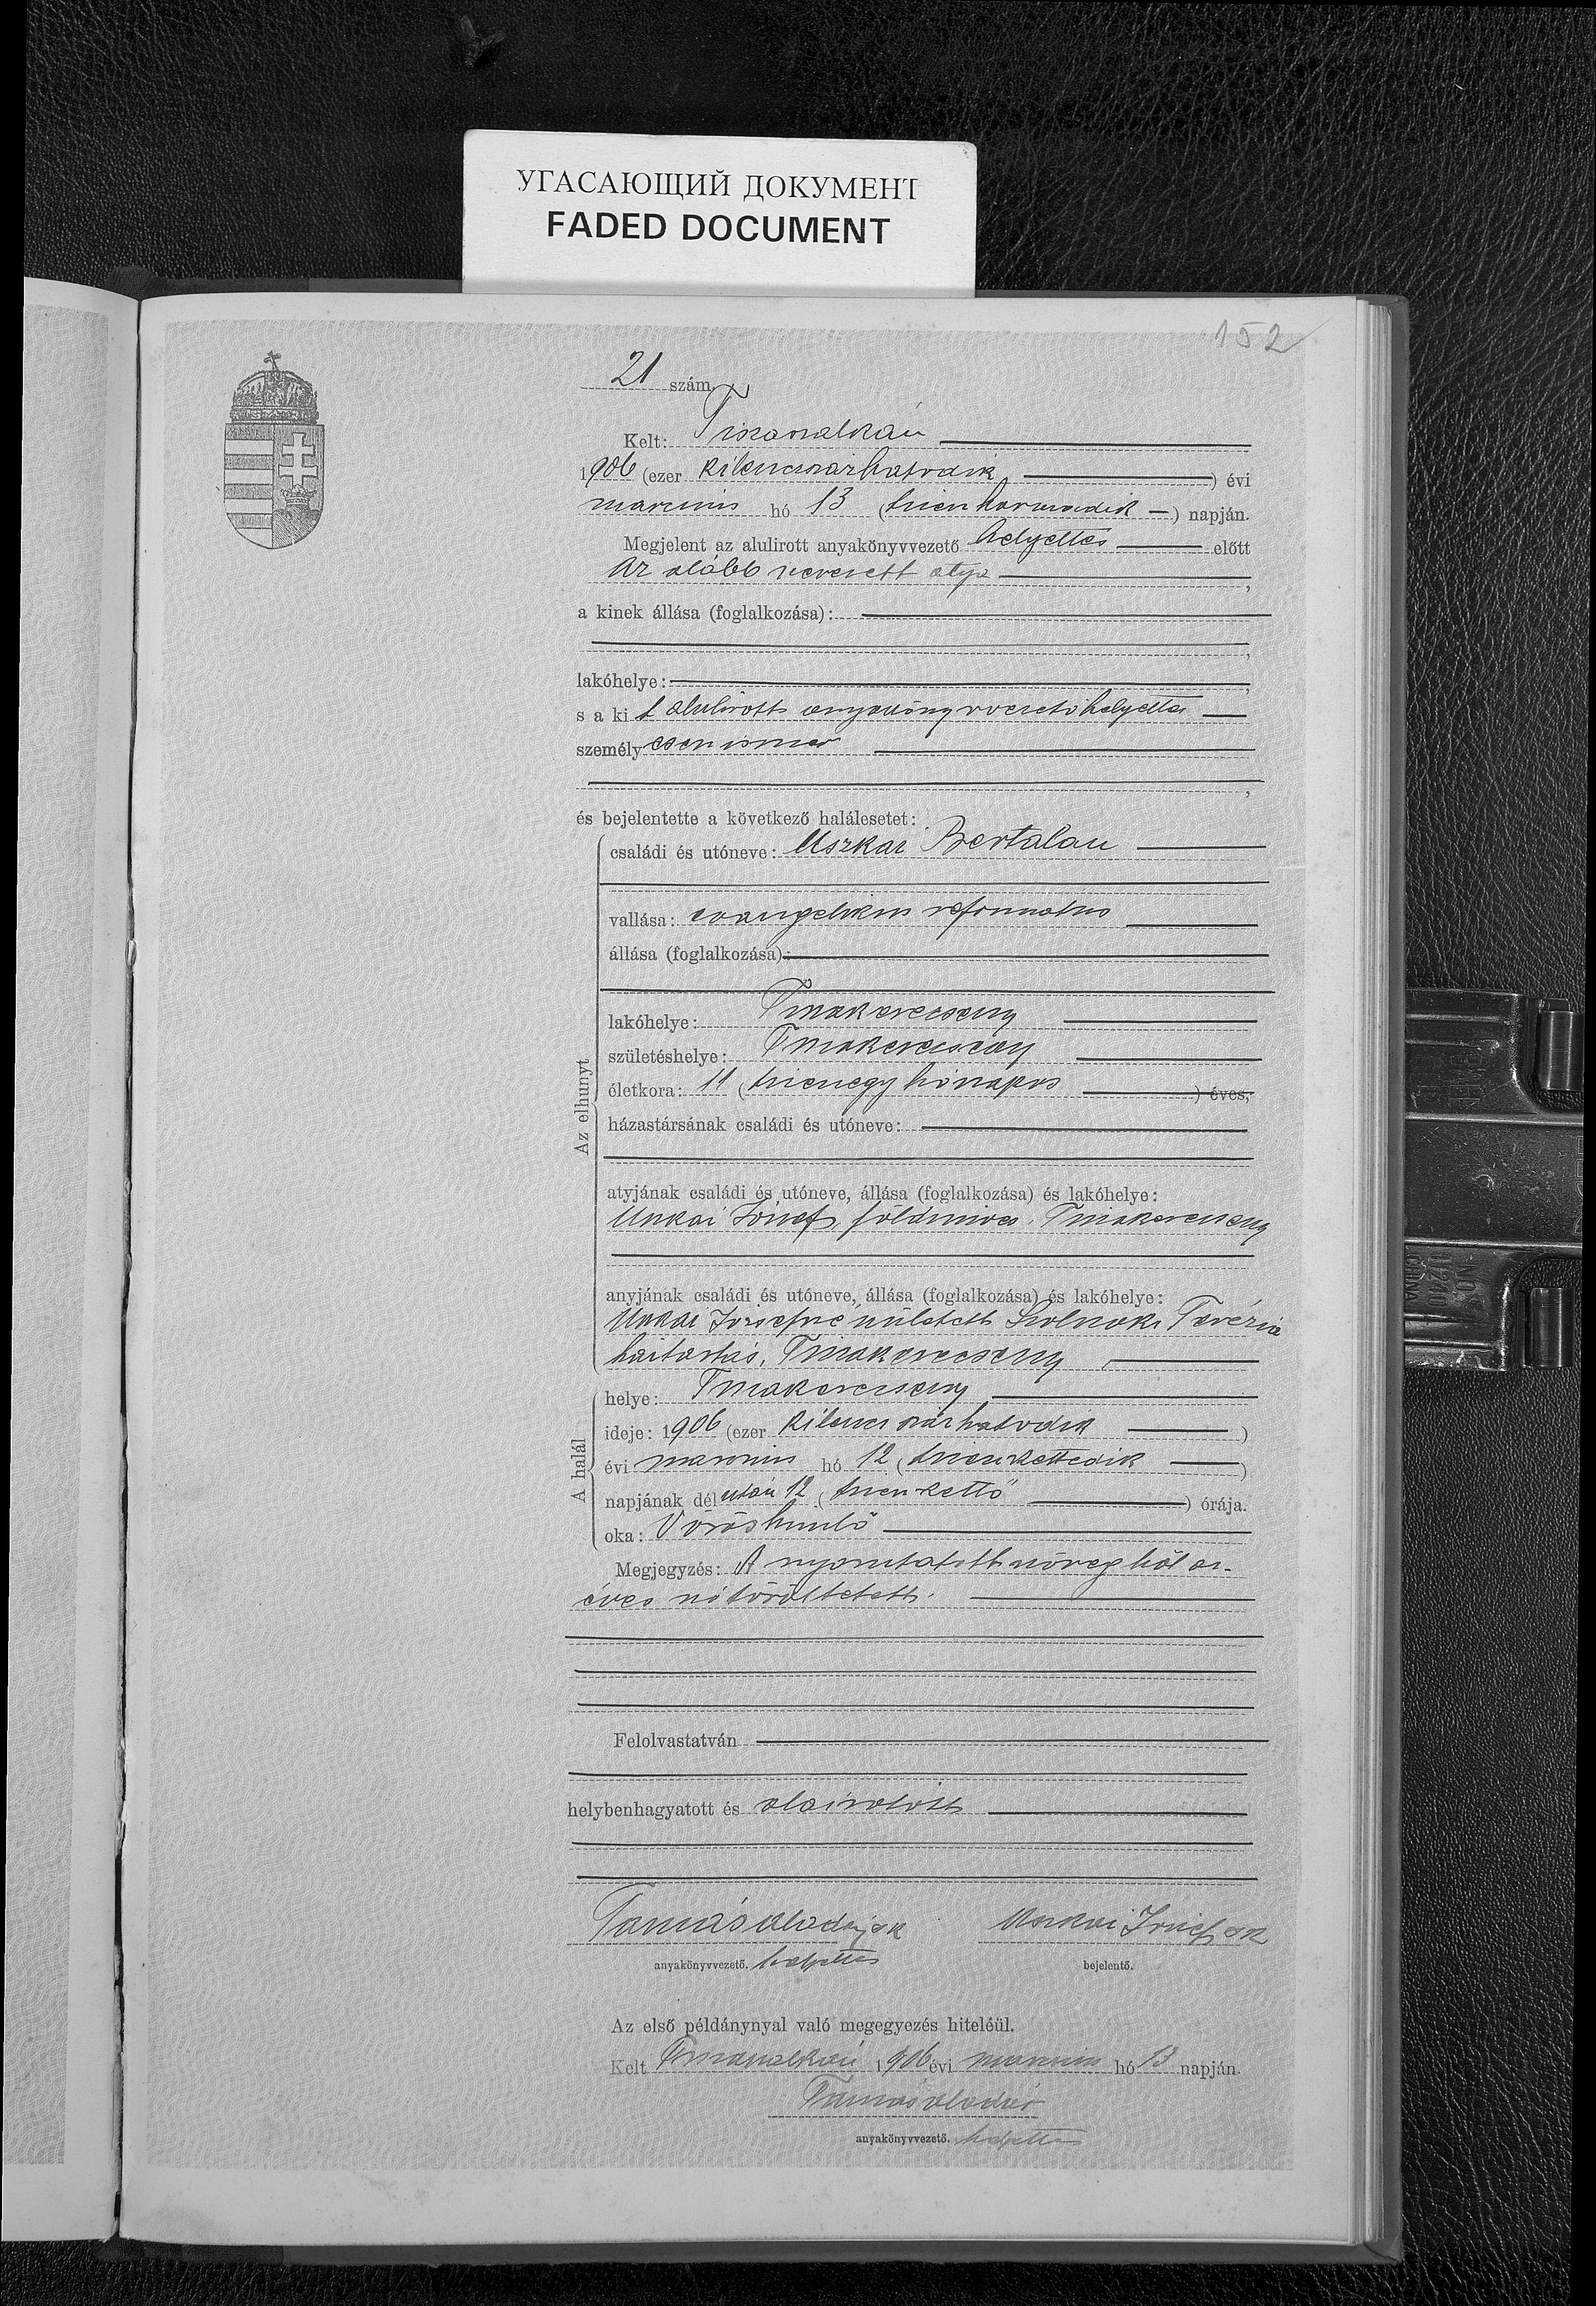 УГАСАЮЩИЙ ДОКУМЕНТ
FADED DOCUMENT
152
21 szám.
Kelt: Tiszasalván
1906 (ezer kilencszázhatodik) évi
marczius hó 13 (tizenharmadik) napján.
Megjelent az alulirott anyakönyvvezető helyettes előtt
Az alább nevezett atya,
a kinek állása (foglalkozása):
lakóhelye:
s a ki t alulirott anyakönyvvezető helyettes
személyesen ismer
és bejelentette a következő halálesetet:
Az elhunyt
családi és utóneve: Uszkai Bertalan
vallása: evangelikus reformatus
állása (foglalkozása):
lakóhelye: Tiszakerecseny
születéshelye: Tiszakerecseny
életkora: 11 (tizenegy hónapos) éves,
házastársának családi és utóneve:
atyjának családi és utóneve, állása (foglalkozása) és lakóhelye:
Uszkai József, földmives, Tiszakerecseny
anyjának családi és utóneve, állása (foglalkozása) és lakóhelye:
Uszkai Józsefné született Szolnoki Terézia
háztartás, Tiszakerecseny
A halál
helye: Tiszakerecseny
ideje: 1906 (ezer kilenczszázhatodik)
évi marczius hó 12 (tizenkettedik)
napjának délután 12 (tizenkettő) órája.
oka: Vörös himlő
Megjegyzés: A nyomtatott szövegből az
éves szó töröltetett.
Felolvastatván
helybenhagyatott és aláiratott
Tamás Aladár sk Uszkai József sk
anyakönyvvezető. helyettes bejelentő.
Az első példánynyal való megegyezés hiteléül.
Kelt 1906 évi marczius hó 13 napján.
Tamás Aladár
anyakönyvvezető. helyettes